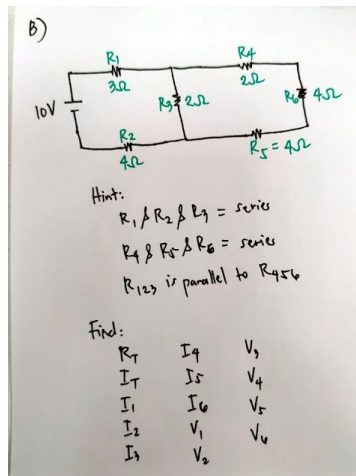 B)
R1
3Ω
R4
2Ω
10V
R3
2Ω
R6
4Ω
R2
4Ω
R5 = 4Ω
Hint:
R1 & R2 & R3 = series
R4 & R5 & R6 = series
R123 is parallel to R456
Find:
RT I4 V3
IT I5 V4
I1 I6 V5
I2 V1 V6
I3 V2